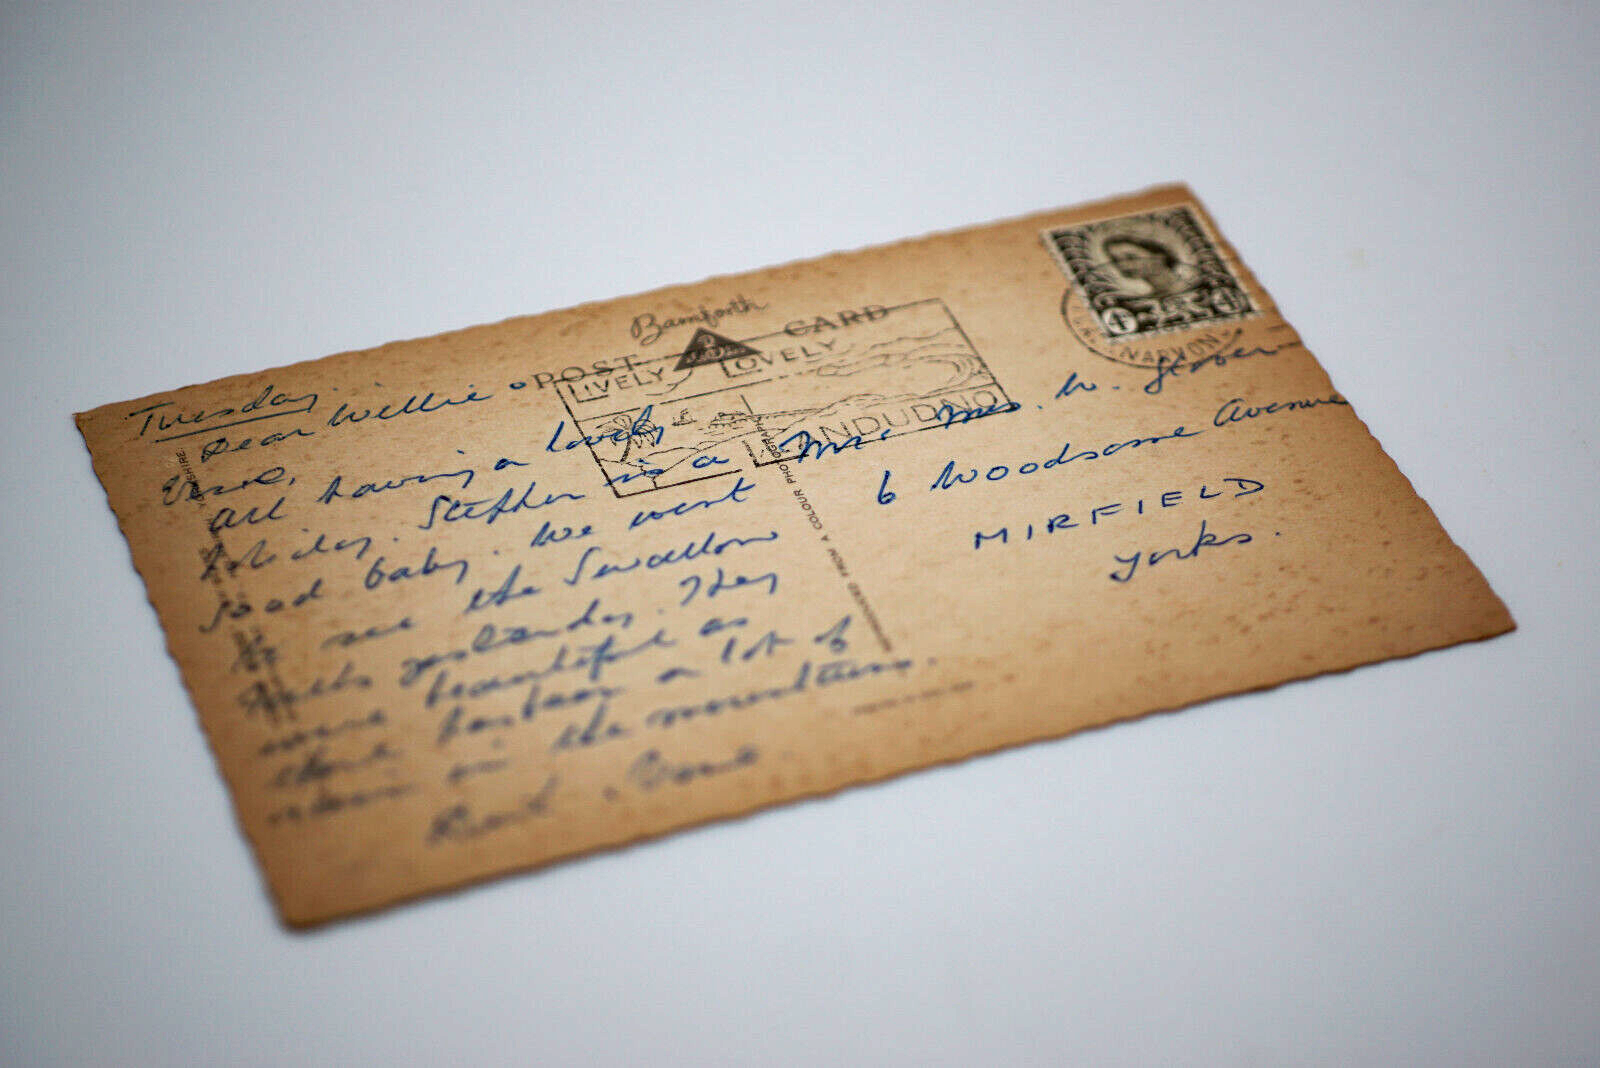 Bamforth
POST CARD
LIVELY LOVELY
LLANDUDNO
4D 4D
Tuesday
Dear Willie &
all having a lovely
holiday. Stephen is a
good baby. We went
to see the Swallow
Falls yesterday. They
were beautiful as
there has been a lot of
rain in the mountains.
Mr. Mrs. W.
6 Woodsome Avenue
MIRFIELD
Yorks.
FROM A COLOUR PHOTOGRAPH
YORKSHIRE